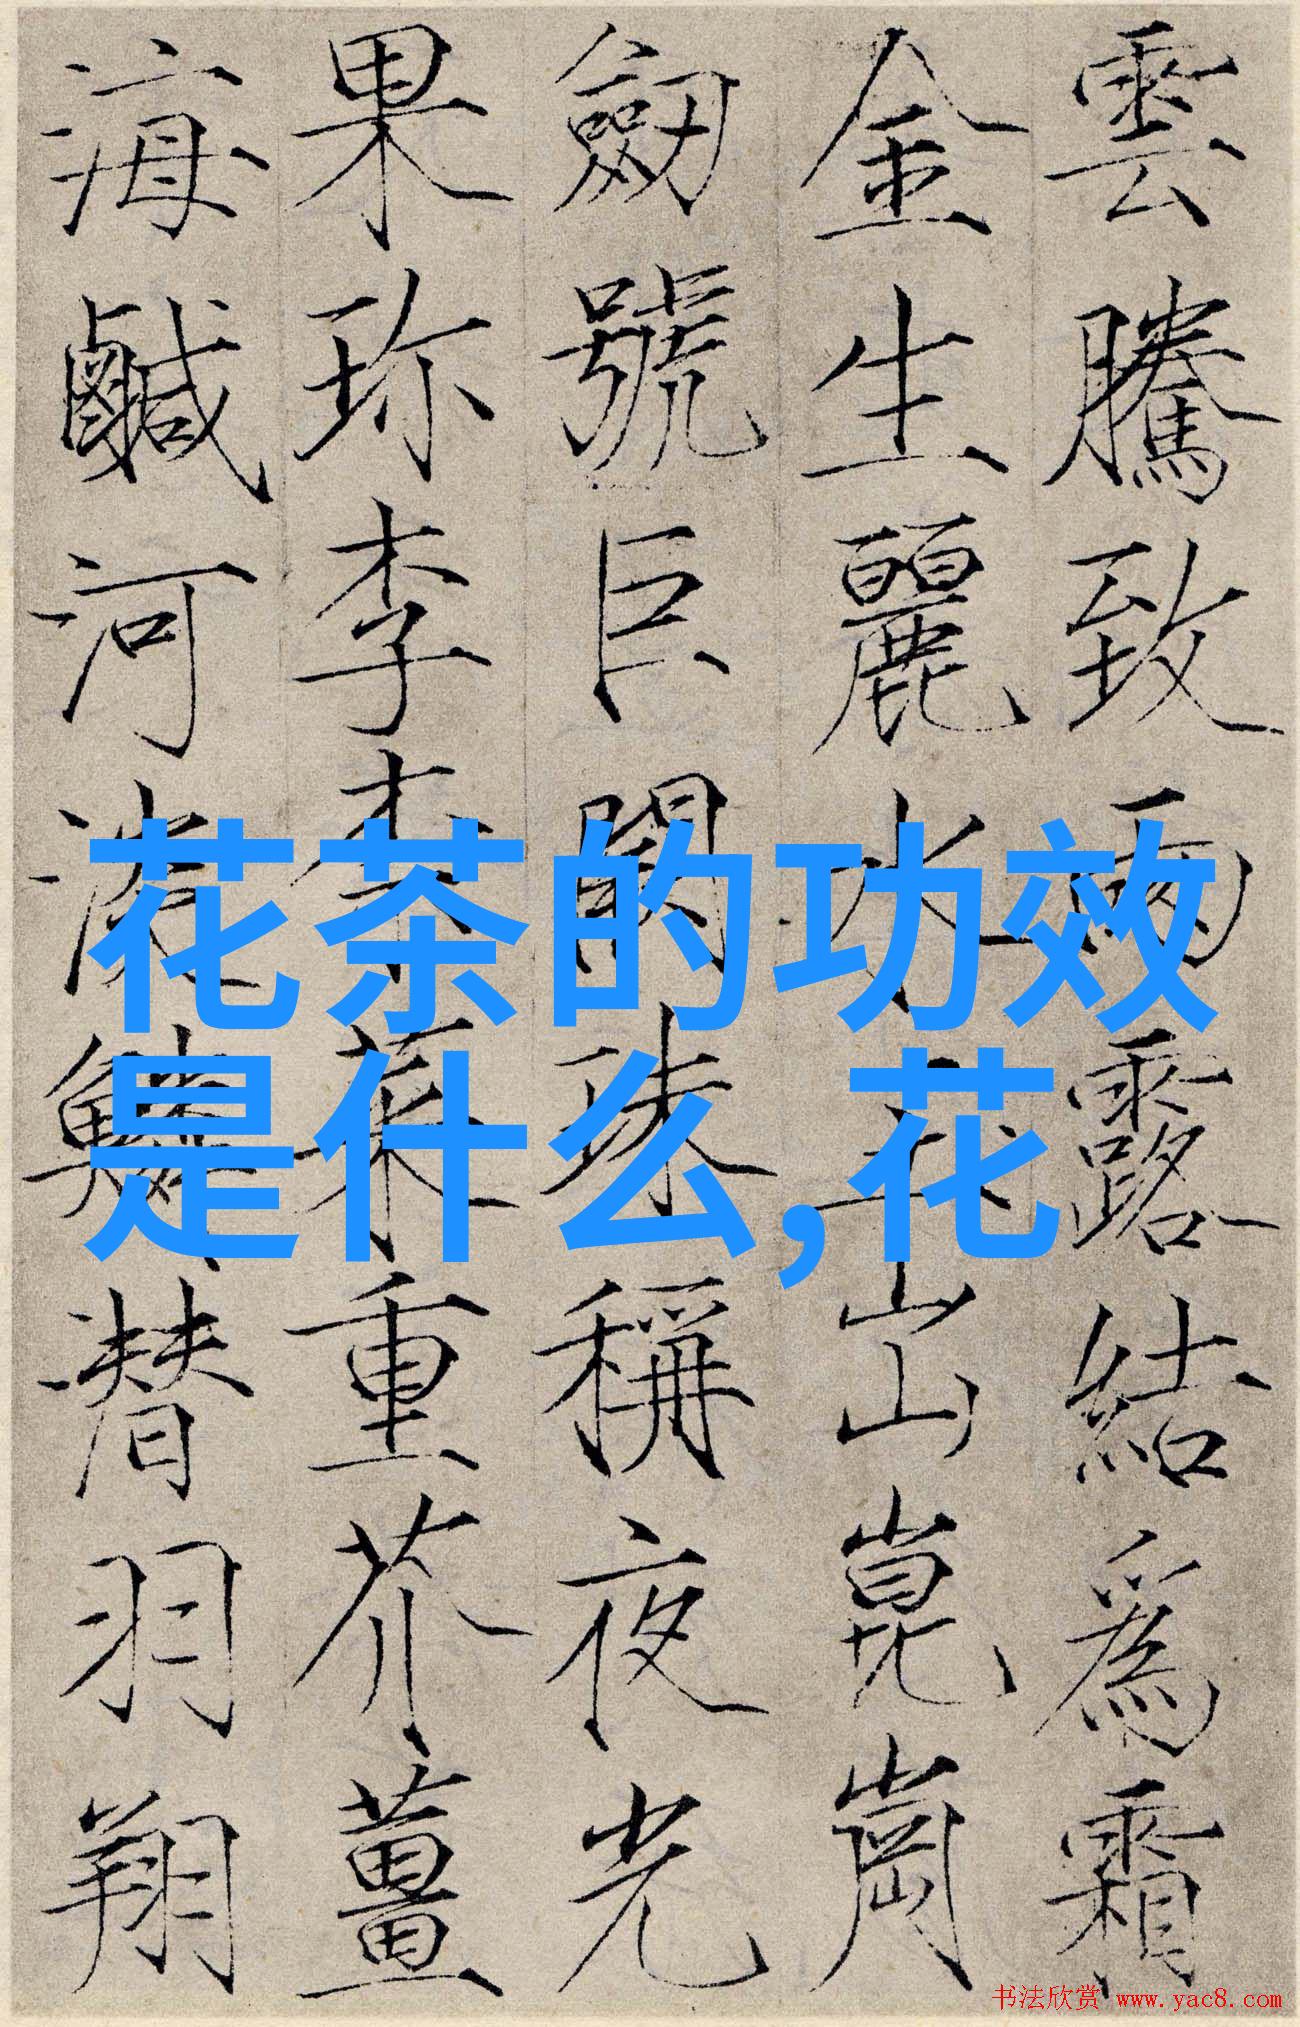 雲騰致雨露結爲霜
金生麗水玉出崑崗
劒號巨闕珠稱夜光
果珎李柰菜重芥薑
海鹹河淡鱗潜羽翔
花茶的功效
是什么,花
书法欣赏 www.yac8.com